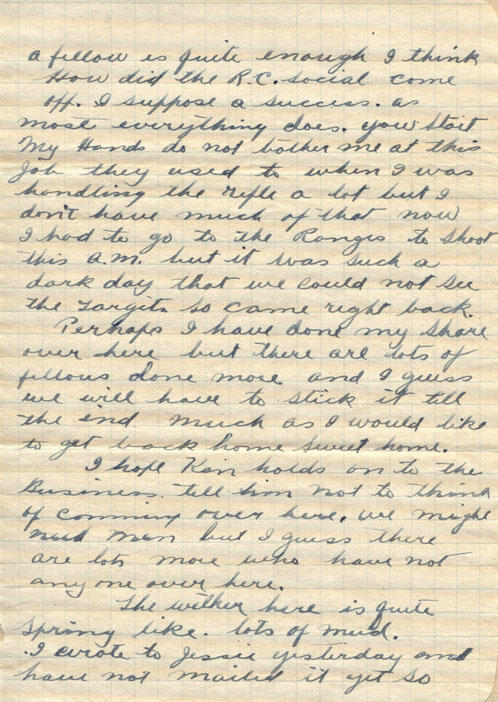 a fellow is quite enough I think
How did the R.C. social come
off. I suppose a success. as
most everything does. you start
My Hands do not bother me at this
Job they used to when I was
handling the rifle a lot but I
don't have much of that now
I had to go to the Ranges to shoot
this A.M. but it was such a
dark day that we could not see
the Targits so came right back.
Perhaps I have done my share
over here but there are lots of
fellows done more and I guess
we will have to stick it till
the end much as I would like
to get back home sweet home.
I hope Ken holds on to the
Business. tell him not to think
of comming over here. we might
need men but I guess there
are lots more who have not
any one over here.
The wether here is quite
Spring like. lots of mud.
I wrote to Jessie yesterday and
have not mailed it yet so